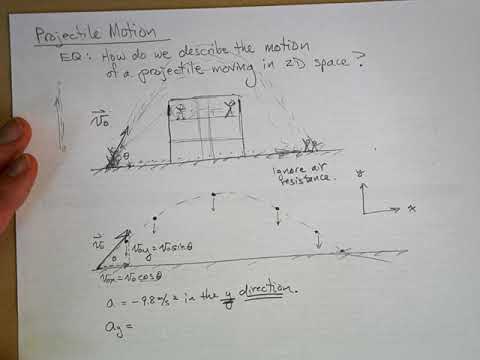 Projectile Motion
EQ: How do we describe the motion
of a projectile moving in 2D space?
v₀
θ
Ignore air
resistance.
y
x
v
v₀y = v₀ sin θ
θ
v₀x = v₀ cos θ
a = -9.8 m/s² in the y direction.
ay =